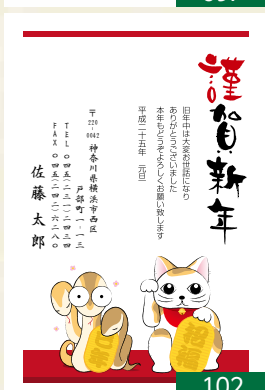 謹賀新年
旧年中は大変お世話になり
ありがとうございました
本年もどうぞよろしくお願い致します
平成二十五年 元旦
〒220-0042
神奈川県横浜市西区
戸部町一-一三
TEL 〇四五(二三一)二四三四
FAX 〇四五(二四二)六二八〇
佐藤太郎
招福
巳年
102